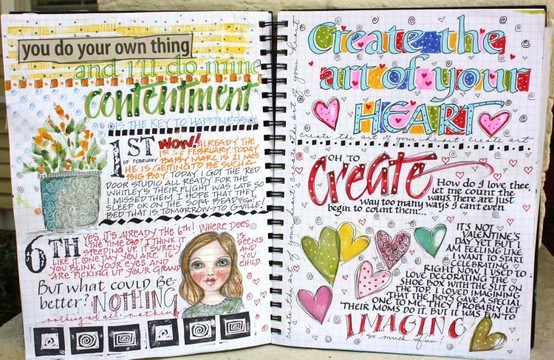 you do your own thing
and i'll do mine
contentment
IS THE KEY TO HAPPINESS
1ST
OF FEBRUARY
WOW!! ALREADY THE
BIG BOY. TODAY I GOT THE RED
DOOR STUDIO ALL READY FOR THE
WHITLEY'S. THEIR FLIGHT WAS LATE SO
I MISSED THEM. I HOPE THAT THEY
SLEEP OK ON THE SOFA
BED THAT IS TOMORROW-TOO
6TH
YES, IT'S ALREADY THE 6TH! WHERE DOES
THE TIME GO? I THINK IT IS
SPEEDING UP. SURELY SEEMS
LIKE IT. ONE DAY YOU ARE
YOU BLINK YOUR EYES &
ARE PICKING UP YOUR GRAND
CHILD
But what could be
better? NOTHING
nothing at all. nothing
Create the
art of your
HEART
create the art of your heart create art
OH TO
Create
How do I love thee,
let me count the
ways. There are just
way too many ways I can't even
begin to count them...
IT'S NOT
VALENTINE'S
DAY YET BUT I
AM FEELING LIKE
I WANT TO START
CELEBRATING
RIGHT NOW. I USED TO
LOVE DECORATING THE
SHOE BOX WITH THE SLIT ON
THE TOP. I LOVED IMAGINING
THAT THE BOYS GAVE A SPECIAL
ONE TO ME. THEY PROBABLY LET
THEIR MOMS DO IT. BUT IT WAS FUN
IMAGING
so much fun!